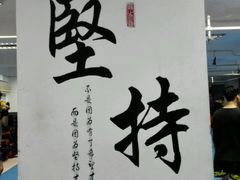 堅持
不是因为有了希望才
而是因为坚持才